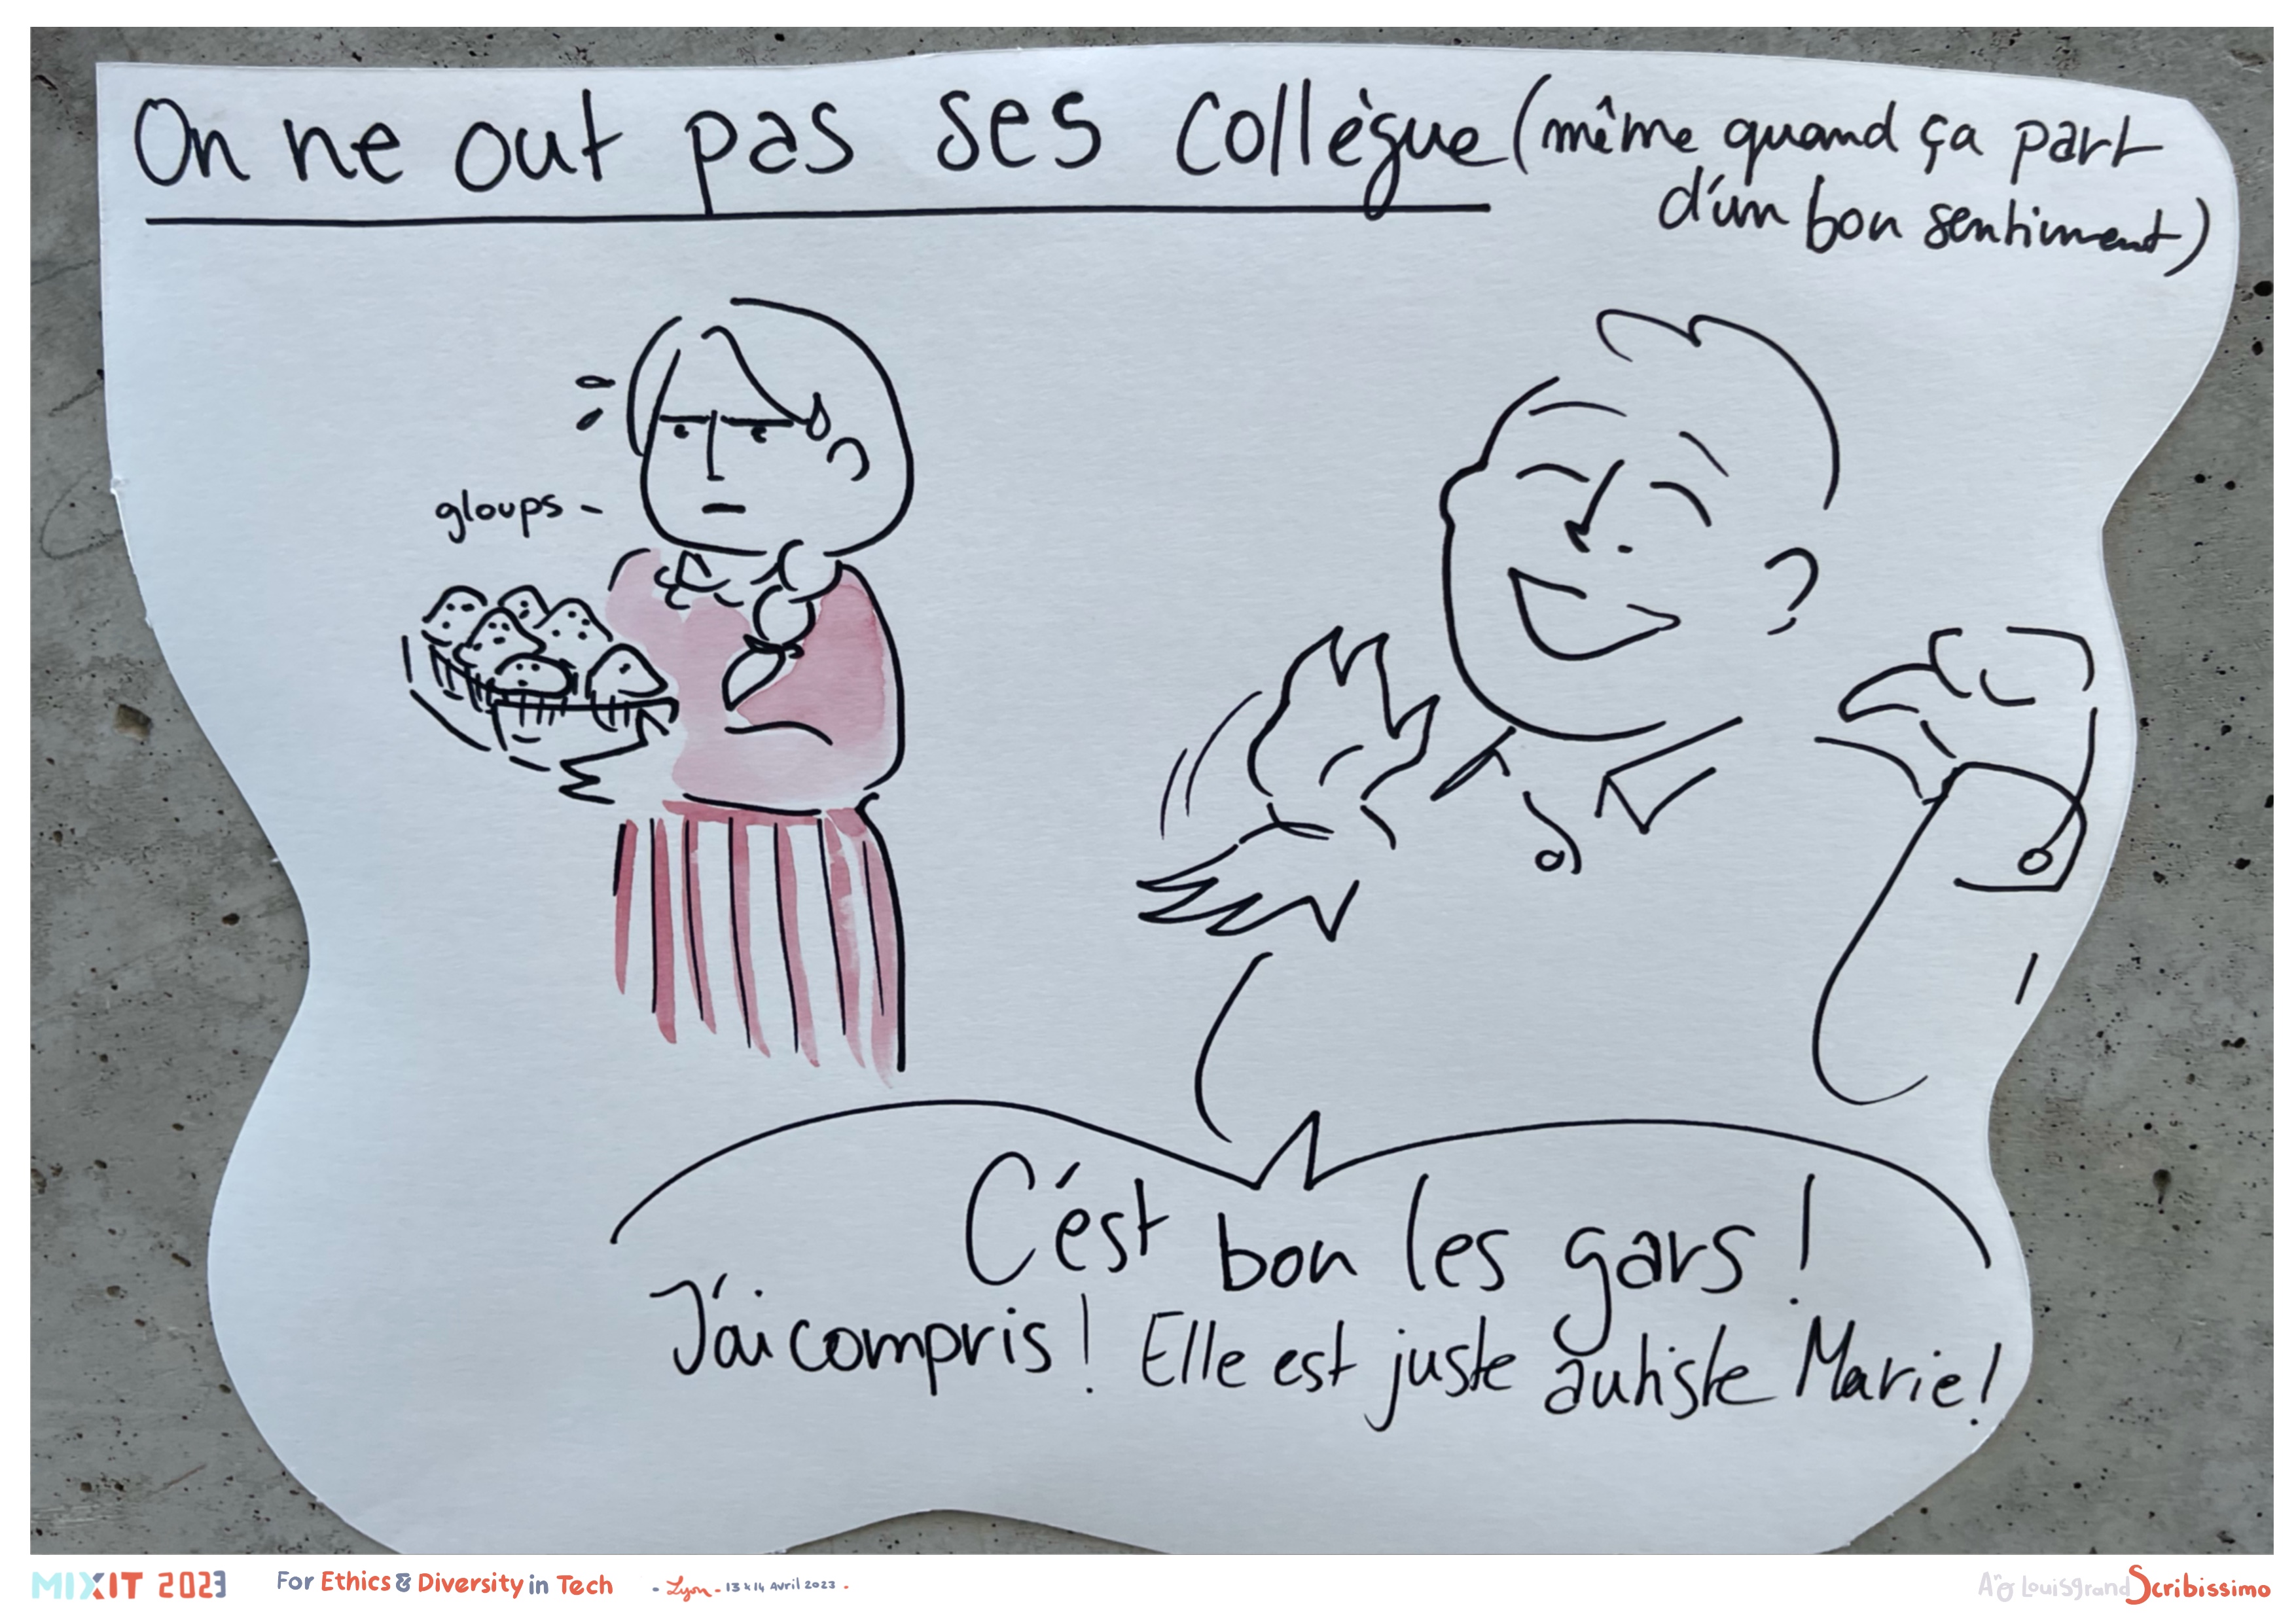 On ne out pas ses collègue (même quand ça part
d'un bon sentiment)
gloups -
C'est bon les gars !
J'ai compris ! Elle est juste autiste Marie !
MIXIT 2023 For Ethics & Diversity in Tech - Lyon - 13 & 14 Avril 2023 -
Louisgrand Scribissimo